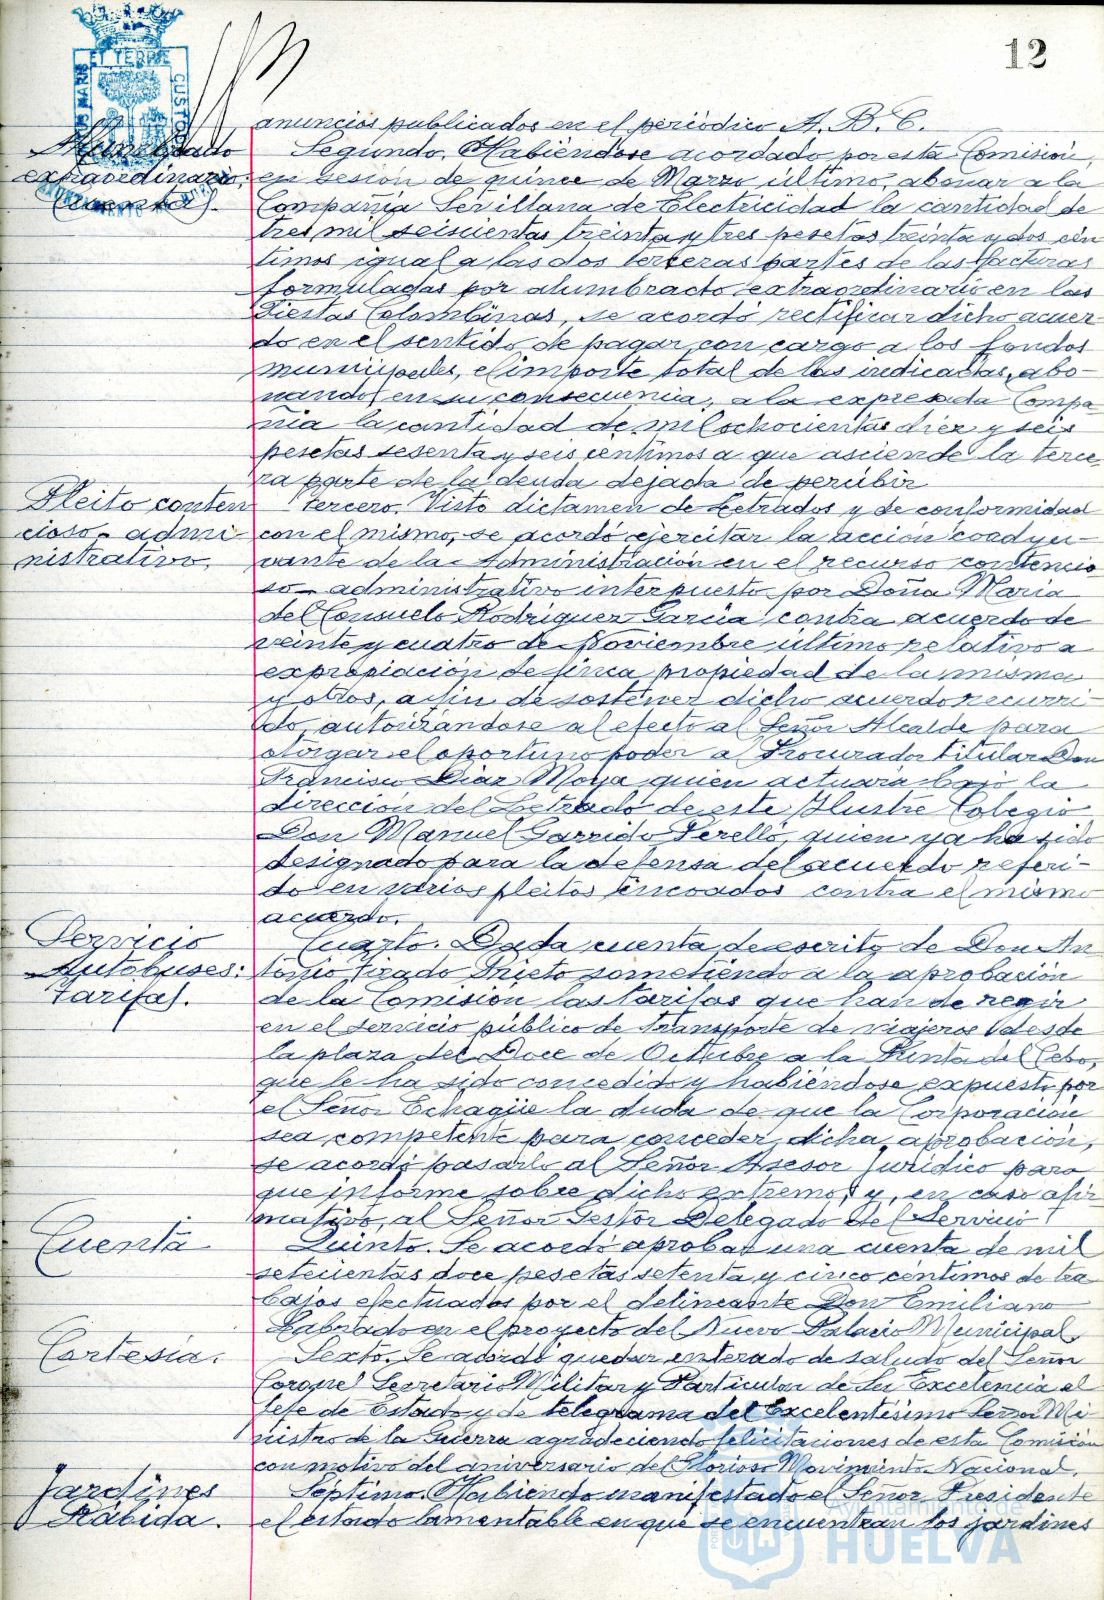 12
anuncios publicados en el periódico A. B. C.
Alumbrado
extraordinario
(cuenta).
Segundo. Habiéndose acordado por esta Comisión,
en sesión de quince de Marzo último, abonar a la
Compañía Sevillana de Electricidad la cantidad de
tres mil seiscientas treinta y tres pesetas treinta y dos cén
timos igual a las dos terceras partes de las facturas
formuladas por alumbrado extraordinario en las
Fiestas Colombinas, se acordó rectificar dicho acuer-
do en el sentido de pagar, con cargo a los fondos
municipales, el importe total de las indicadas, abo-
nando, en su consecuencia, a la expresada Compa-
ñía la cantidad de mil ochocientas diez y seis
pesetas sesenta y seis céntimos a que asciende la terce-
ra parte de la deuda dejada de percibir
Pleito conten
cioso-admi-
nistrativo.
Tercero. Visto dictamen de Letrados y de conformidad
con el mismo, se acordó ejercitar la acción coadyu-
vante de la Administración en el recurso contencio
so-administrativo interpuesto por Doña María
del Consuelo Rodríguez García contra acuerdo de
veinte y cuatro de Noviembre último relativo a
expropiación de finca propiedad de la misma
y otros, a fin de sostener dicho acuerdo recurri-
do, autorizándose al efecto al Señor Alcalde para
otorgar el oportuno poder al Procurador titular Don
Francisco Díaz Moya quien actuaría bajo la
dirección del Letrado de este Ilustre Colegio
Don Manuel Garrido Perelló, quien ya ha sido
designado para la defensa del acuerdo referi-
do en varios pleitos incoados contra el mismo
acuerdo.
Servicio
Autobuses:
tarifas.
Cuarto. Dada cuenta de escrito de Don An
tonio Tirado Prieto sometiendo a la aprobación
de la Comisión las tarifas que han de regir
en el servicio público de transporte de viajeros desde
la plaza del Doce de Octubre a la Punta del Sebo,
que le ha sido concedido y habiéndose expuesto por
el Señor Echagüe la duda de que la Corporación
sea competente para conceder dicha aprobación,
se acordó pasarlo al Señor Asesor Jurídico para
que informe sobre dicho extremo, y, en caso afir
mativo, al Señor Gestor Delegado del Servicio
Cuenta
Quinto. Se acordó aprobar una cuenta de mil
setecientas doce pesetas setenta y cinco céntimos de tra
bajos efectuados por el delineante Don Emiliano
Labrado en el proyecto del Nuevo Palacio Municipal
Cortesía.
Sexto. Se acordó quedar enterado de saludo del Señor
Coronel Secretario Militar y Particular de Su Excelencia el
Jefe de Estado y de telegrama del Excelentísimo Señor Mi
nistro de la Guerra agradeciendo felicitaciones de esta Comisión
con motivo del aniversario del Glorioso Movimiento Nacional.
Jardines
Rábida.
Séptimo. Habiendo manifestado el Señor Presidente
el estado lamentable en que se encuentran los jardines
Ayuntamiento de
HUELVA